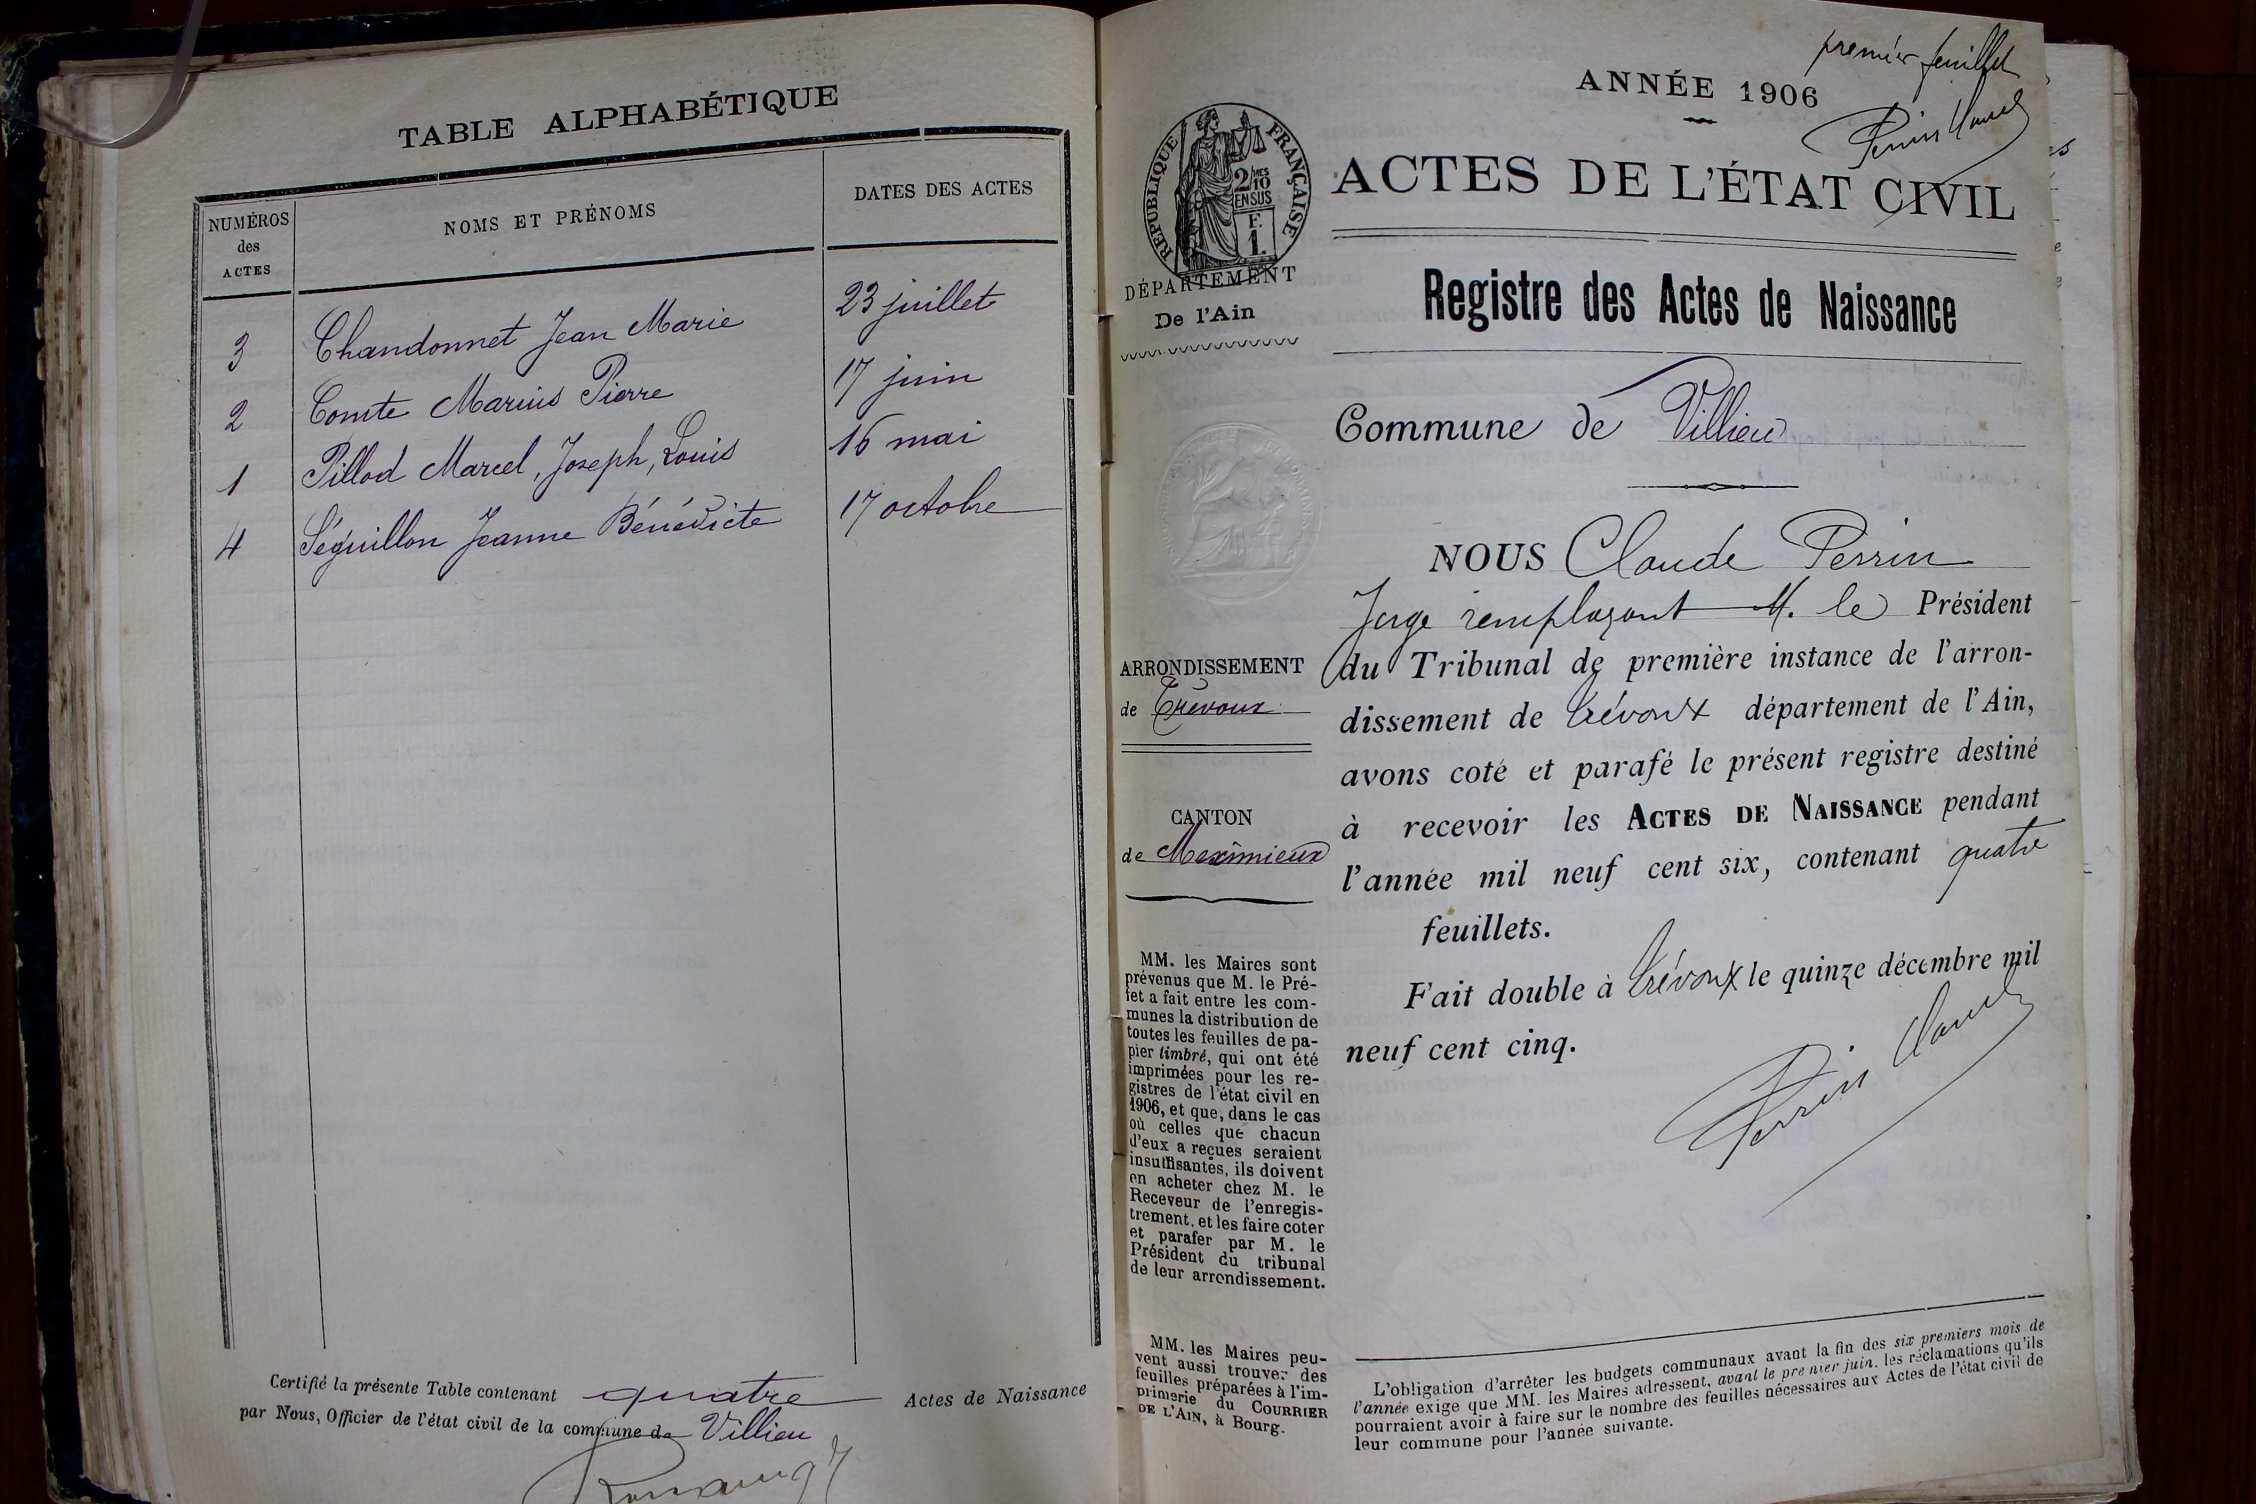 TABLE ALPHABÉTIQUE
NUMÉROS
des
ACTES
NOMS ET PRÉNOMS
DATES DES ACTES
3 Chandonnet Jean Marie 23 juillet
2 Comte Marius Pierre 17 juin
1 Pillod Marcel, Joseph, Louis 16 mai
4 Séguillon Jeanne Bénédicte 17 octobre
Certifié la présente Table contenant quatre Actes de Naissance
par Nous, Officier de l'état civil de la commune de Villieu
premier feuillet
Perrin Claude
ANNÉE 1906
RÉPUBLIQUE FRANÇAISE
2/10MES
EN SUS
F.
1.
ACTES DE L'ÉTAT CIVIL
DÉPARTEMENT
De l'Ain
Registre des Actes de Naissance
Commune de Villieu
NOUS Claude Perrin
Juge remplaçant M. le Président
du Tribunal de première instance de l'arron-
dissement de Trévoux département de l'Ain,
avons coté et parafé le présent registre destiné
à recevoir les ACTES DE NAISSANCE pendant
l'année mil neuf cent six, contenant quatre
feuillets.
Fait double à Trévoux le quinze décembre mil
neuf cent cinq.
Perrin Claude
ARRONDISSEMENT
de Trévoux
CANTON
de Meximieux
MM. les Maires sont
prévenus que M. le Pré-
fet a fait entre les com-
munes la distribution de
toutes les feuilles de pa-
pier timbré, qui ont été
imprimées pour les re-
gistres de l'état civil en
1906, et que, dans le cas
où celles que chacun
d'eux a reçues seraient
insuffisantes, ils doivent
en acheter chez M. le
Receveur de l'enregis-
trement, et les faire coter
et parafer par M. le
Président du tribunal
de leur arrondissement.
MM. les Maires peu-
vent aussi trouver des
feuilles préparées à l'im-
primerie du COURRIER
DE L'AIN, à Bourg.
L'obligation d'arrêter les budgets communaux avant la fin des six premiers mois de
l'année exige que MM. les Maires adressent, avant le premier juin, les réclamations qu'ils
pourraient avoir à faire sur le nombre des feuilles nécessaires aux Actes de l'état civil de
leur commune pour l'année suivante.